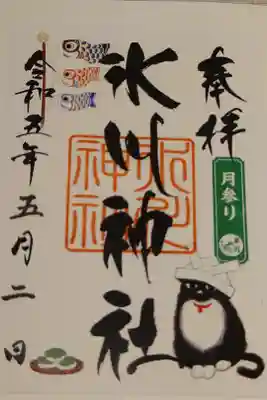 奉拝
月参り
氷川神社
令和五年五月二日